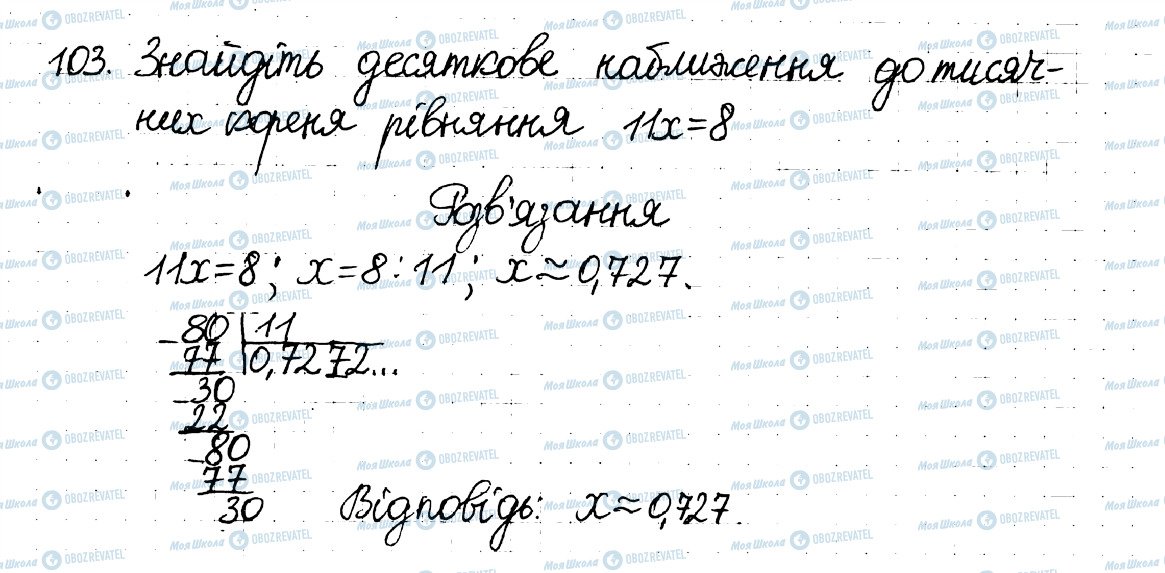 103. Знайдіть десяткове наближення до тисяч-
них кореня рівняння 11x=8
Розв'язання
11x=8; x=8:11; x≈0,727.
_80 |11
77 |0,7272...
_30
22
_80
77
30
Відповідь: x≈0,727.